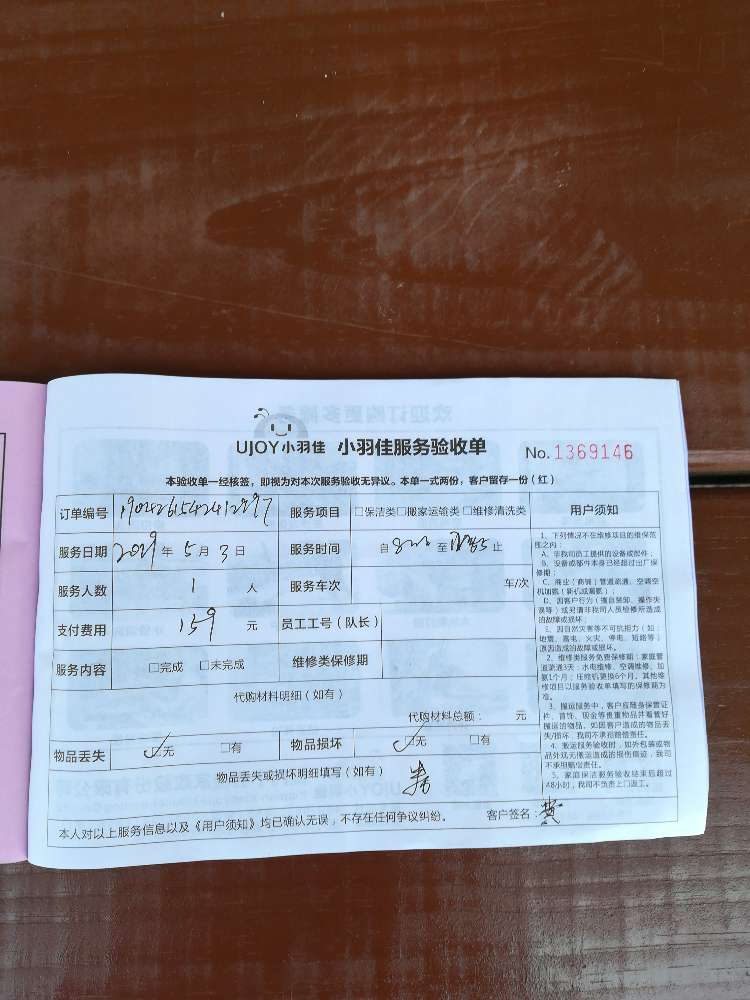 UJOY小羽佳 小羽佳服务验收单 No.1369146
本验收单一经核签，即视为对本次服务验收无异议。本单一式两份，客户留存一份（红）
订单编号 服务项目 □保洁类□搬家运输类□维修清洗类 用户须知
服务日期 2019年5月3日 服务时间 自 至 止
服务人数 1 人 服务车次 车/次
支付费用 159 元 员工工号（队长）
服务内容 □完成 □未完成 维修类保修期
代购材料明细（如有）
代购材料总额： 元
物品丢失 ☑无 □有 物品损坏 ☑无 □有
物品丢失或损坏明细填写（如有）
本人对以上服务信息以及《用户须知》均已确认无误，不存在任何争议纠纷。 客户签名：
1、下列情况不在维修项目的维保范
围之内：
A、非我司员工提供的设备或部件；
B、设备或部件本身已经超过出厂保
修期；
C、商业（商铺）管道疏通、空调空
机加氟（新机或漏氟）；
D、因客户行为（擅自装卸、操作失
误等）或另请非我司人员检修所造成
的故障或损坏；
E、因自然灾害等不可抗拒力（如：
地震、雷电、火灾、停电、短路等）
原因造成的故障或损坏。
2、维修类服务免费保修期：家庭管
道疏通3天；水电维修、空调维修、加
氟1个月；压缩机更换6个月。其他维
修项目以服务验收单填写的保修期为
准。
3、搬运服务中，客户应随身保管证
件、首饰、现金等贵重物品并看管好
搬运的物品，如因客户造成的物品丢
失/损坏，我司不承担赔偿责任。
4、搬运服务验收时，如外包装或物
品外观无搬运造成的损伤痕迹，我司
不承担赔偿责任。
5、家庭保洁服务验收结束后超过
48小时，我司不负责上门返工。